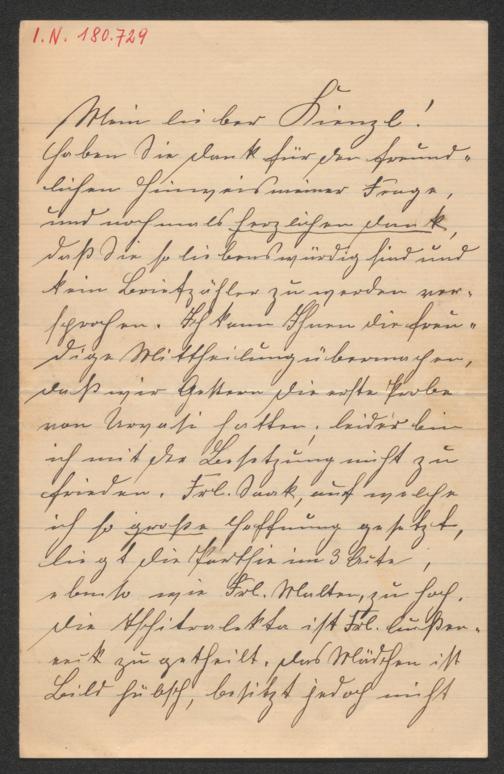 I.N. 180.729
Mein lieber Kienzl!
Haben Sie Dank für den freund-
lichen Hinweis meiner Frage,
und nochmals herzlichen Dank,
daß Sie so liebenswürdig sind und
kein Briefzähler zu werden ver-
sprachen. Ich kann Ihnen die freu-
dige Mittheilung übermachen,
daß wir Gestern die erste Probe
von Urvasi hatten, leider bin
ich mit der Besetzung nicht zu
frieden. Frl. Saak, auf welche
ich so große Hoffnung gesetzt,
liegt die Parthie im 3 Acte,
ebenso wie Frl. Malten, zu hoch.
Die Tschitralekta ist Frl.
zu getheilt. Das Mädchen ist
Bild hübsch, besitzt jedoch nicht